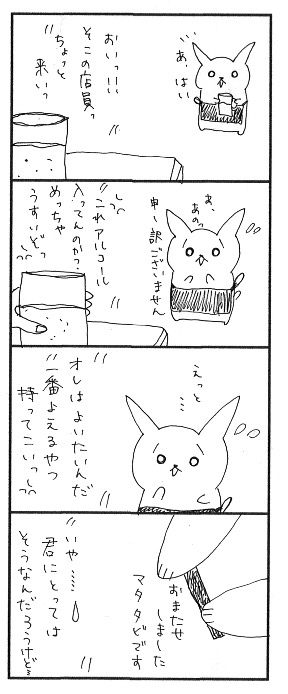 あ、はい
おいっ!!!
そこの店員っ
ちょっと
来いっ
あ、
あのっ
申し訳ございません
これアルコール
入ってんのか?
めっちゃ
うすいどっ
えっと
……
オレはよいたいんだ
一番よえるやつ
持ってこいっ
おまたせ
しました
マタタビです
いや……
君にとっては
そうなんだろうけど